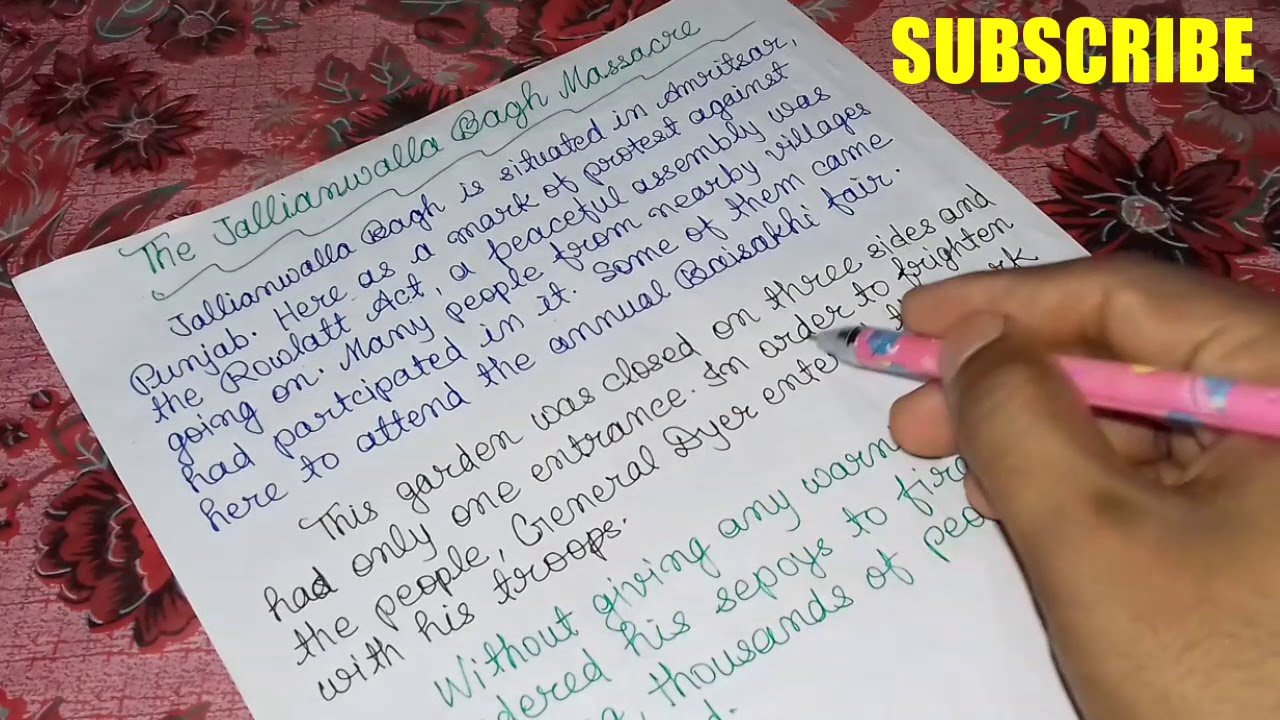 SUBSCRIBE
The Jallianwalla Bagh Massacre
Jallianwalla Bagh is situated in Amritsar,
Punjab. Here as a mark of protest against
the Rowlatt Act, a peaceful assembly was
going on. Many people from nearby villages
had partcipated in it. Some of them came
here to attend the annual Baisakhi fair.
This garden was closed on three sides and
had only one entrance. In order to frighten
the people, General Dyer
with his troops.
Without giving any
his sepoys to
thousands of